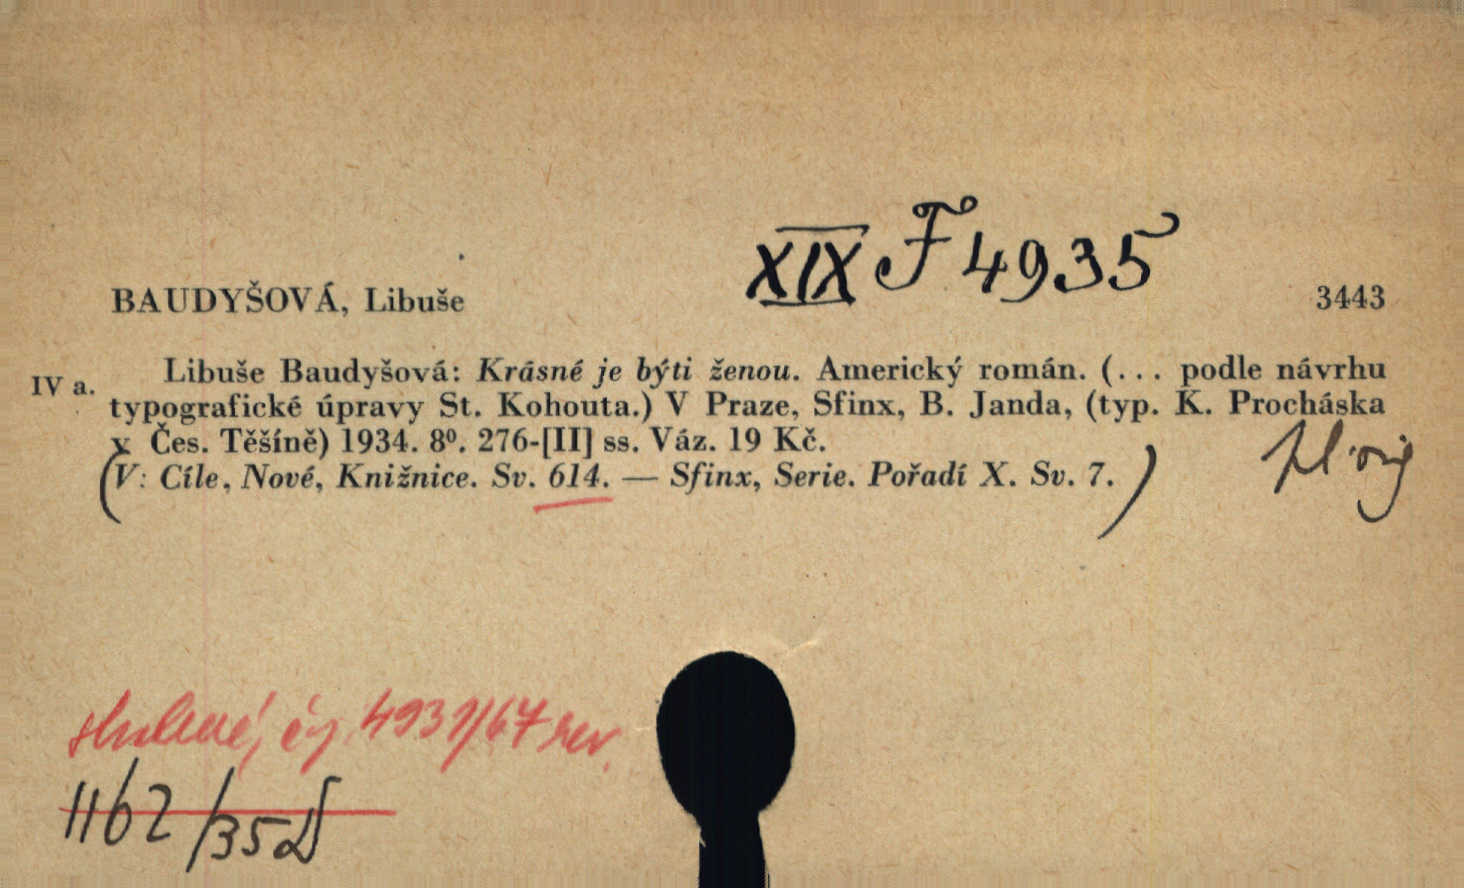 XIX F 4935
BAUDYŠOVÁ, Libuše 3443
IV a. Libuše Baudyšová: Krásné je býti ženou. Americký román. (... podle návrhu
typografické úpravy St. Kohouta.) V Praze, Sfinx, B. Janda, (typ. K. Procháska
v Čes. Těšíně) 1934. 8º. 276-[II] ss. Váz. 19 Kč.
(V: Cíle, Nové, Knižnice. Sv. 614. — Sfinx, Serie. Pořadí X. Sv. 7.)
1162/35